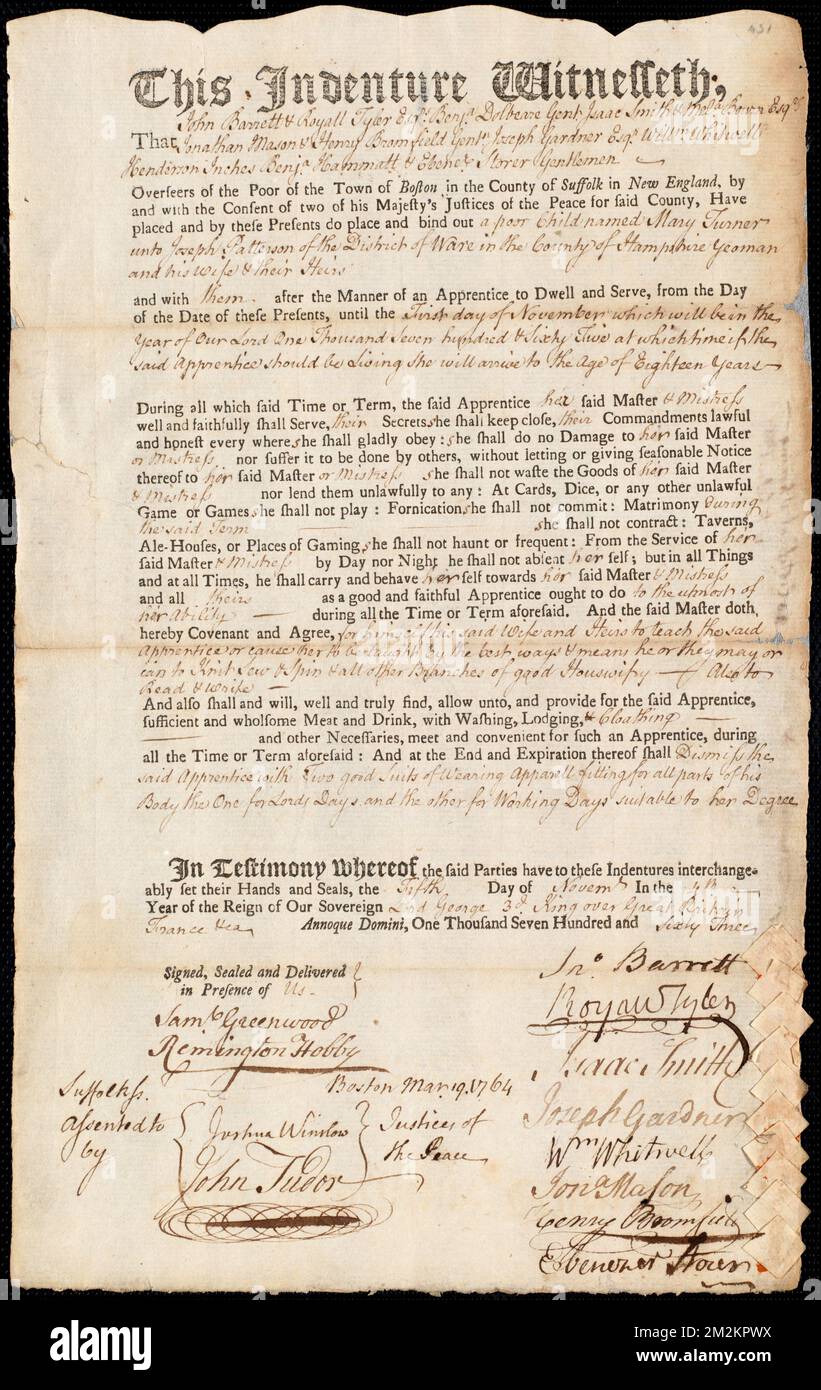 431
This Indenture Witnesseth,
John Barrett & Royall Tyler Esqrs Benja Dolbeare Gent Isaac Smith & Esqrs
That Jonathan Mason & Henry Bromfield Gentn Joseph Gardner Esqr Willm Whitwell
Henderson Inches Benja Hammatt & Ebenezr Storer Gentlemen
Overseers of the Poor of the Town of Boston in the County of Suffolk in New England, by
and with the Consent of two of his Majesty's Justices of the Peace for said County, Have
placed and by these Presents do place and bind out a poor Child named Mary Turner
unto Joseph Patterson of the District of Ware in the County of Hampshire Yeoman
and his Wife & their Heirs
and with them after the Manner of an Apprentice to Dwell and Serve, from the Day
of the Date of these Presents, until the First day of November which will be in the
Year of Our Lord One Thousand Seven hundred & Sixty Five at which time if the
said Apprentice should be Living she will arrive to the Age of Eighteen Years
During all which said Time or Term, the said Apprentice her said Master & Mistress
well and faithfully shall Serve, their Secrets she shall keep close, their Commandments lawful
and honest every where she shall gladly obey: she shall do no Damage to her said Master
or Mistress nor suffer it to be done by others, without letting or giving seasonable Notice
thereof to her said Master or Mistress she shall not waste the Goods of her said Master
& Mistress nor lend them unlawfully to any: At Cards, Dice, or any other unlawful
Game or Games she shall not play: Fornication she shall not commit: Matrimony during
the said Term she shall not contract: Taverns,
Ale-Houses, or Places of Gaming, she shall not haunt or frequent: From the Service of her
said Master & Mistress by Day nor Night he shall not absent her self; but in all Things
and at all Times, he shall carry and behave her self towards her said Master & Mistress
and all theirs as a good and faithful Apprentice ought to do to the utmost of
her Ability during all the Time or Term aforesaid. And the said Master doth
hereby Covenant and Agree, for himself his said Wife and Heirs to teach the said
Apprentice or cause her to be taught by the best ways & means he or they may or
can to Knit Sew & Spin & all other Branches of good Houswifry Also to
Read & Write
And also shall and will, well and truly find, allow unto, and provide for the said Apprentice,
sufficient and wholsome Meat and Drink, with Washing, Lodging, & Cloathing
and other Necessaries, meet and convenient for such an Apprentice, during
all the Time or Term aforesaid: And at the End and Expiration thereof shall Dismiss the
said Apprentice with Two good Suits of Wearing Apparell fitting for all parts of his
Body the One for Lords Days and the other for Working Days suitable to her Degree
In Testimony whereof the said Parties have to these Indentures interchange-
ably set their Hands and Seals, the Fifth Day of Novemr In the 4th
Year of the Reign of Our Sovereign Lord George 3d King over Great Britain
France &ca Annoque Domini, One Thousand Seven Hundred and Sixty Three
Signed, Sealed and Delivered
in Presence of Us
Saml Greenwood
Remington Hobby
Jno Barrett
Royall Tyler
Isaac Smith
Joseph Gardner
Wm Whitwell
Jona Mason
Henry Bromfield
Ebenezer Storer
Boston Mar. 19. 1764
Suffolk ss.
assented to
by
Joshua Winslow
John Tudor
Justices of
the Peace
alamy
alamy
Image ID: 2M2KPWX
www.alamy.com